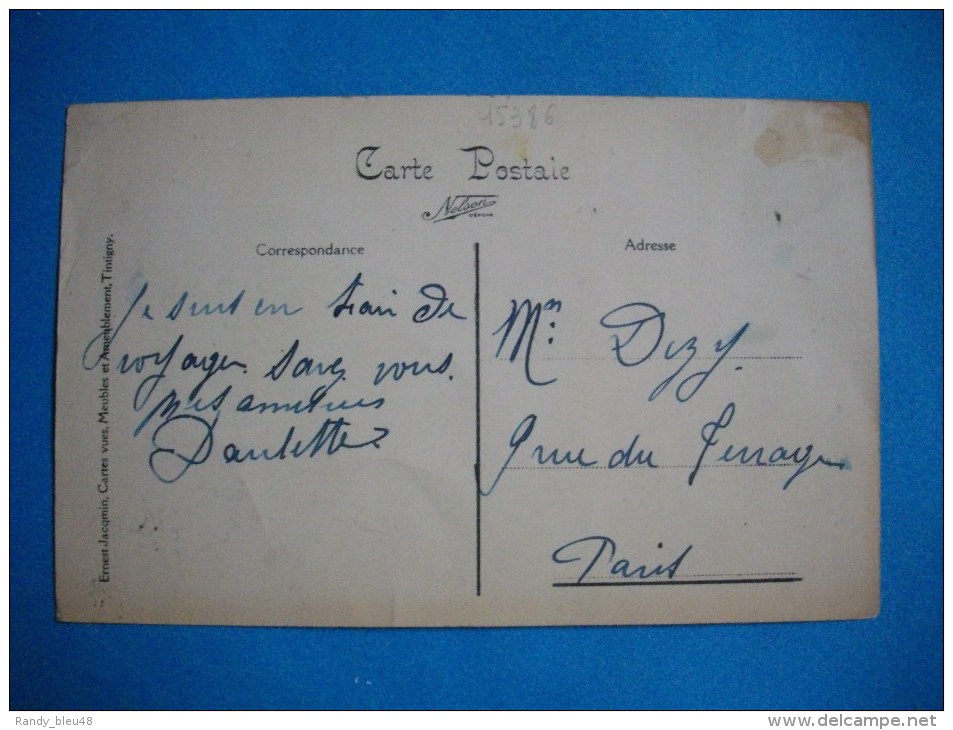 15386
Carte Postale
Nelson
DÉPOSÉ
Correspondance
Adresse
Je suis en train de
voyager. Savez vous.
mes amitiés
Paulette
Mr: Dizy.
9 rue du Terrage
Paris
Ernest Jacqmin, Cartes vues, Meubles et Ameublement, Tintigny.
Randy_bleu48
www.delcampe.net